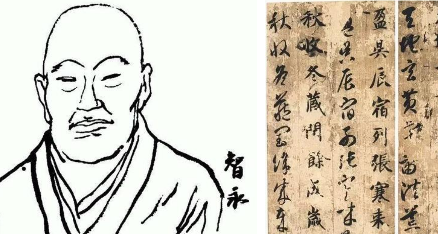 智永
天地玄黄宇宙洪荒
盈昃辰宿列張寒来
盈昃辰宿列張寒来
秋收冬藏閏餘成歲
秋收冬藏閏餘成歲